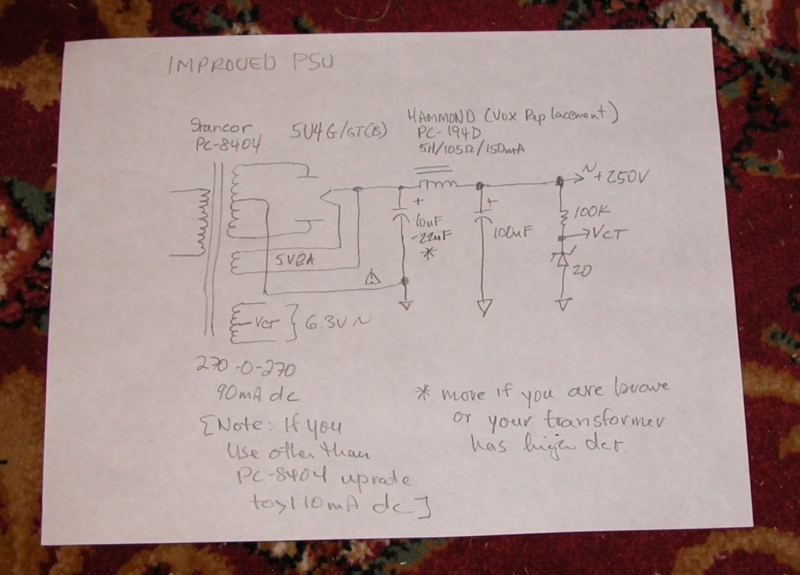 IMPROVED PSU
Stancor
PC-8404
5U4G/GT(B)
HAMMOND (Vox Replacement)
PC-194D
5H/105Ω/150mA
~+250V
+
10uF
-22uF
*
+
100uF
100K
VCT
5V2A
VCT
6.3V~
270-0-270
90mA dc
[Note: If you
use other than
PC-8404 uprate
to >110mA dc]
* more if you are brave
or your transformer
has high dcr.